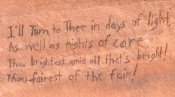 I'll Turn to Thee in days of light,
As well as nights of care.
Thou brightest amid all that's bright!
Thou fairest of the fair!